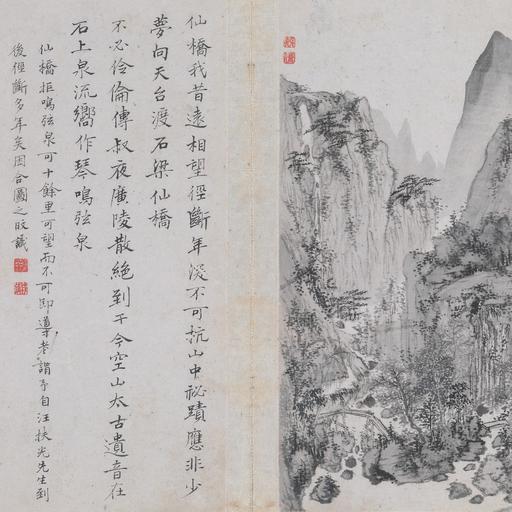 仙橋我昔遠相望徑斷年深不可杭山中祕蹟應非少
夢向天台渡石梁仙橋
不必伶倫傳叔夜廣陵散絕到于今空山太古遺音在
石上泉流嚮作琴鳴弦泉
仙橋拒鳴弦泉可十餘里可望而不可即導者謂予自汪扶光先生到
後徑斷多年矣因合圖之旼識